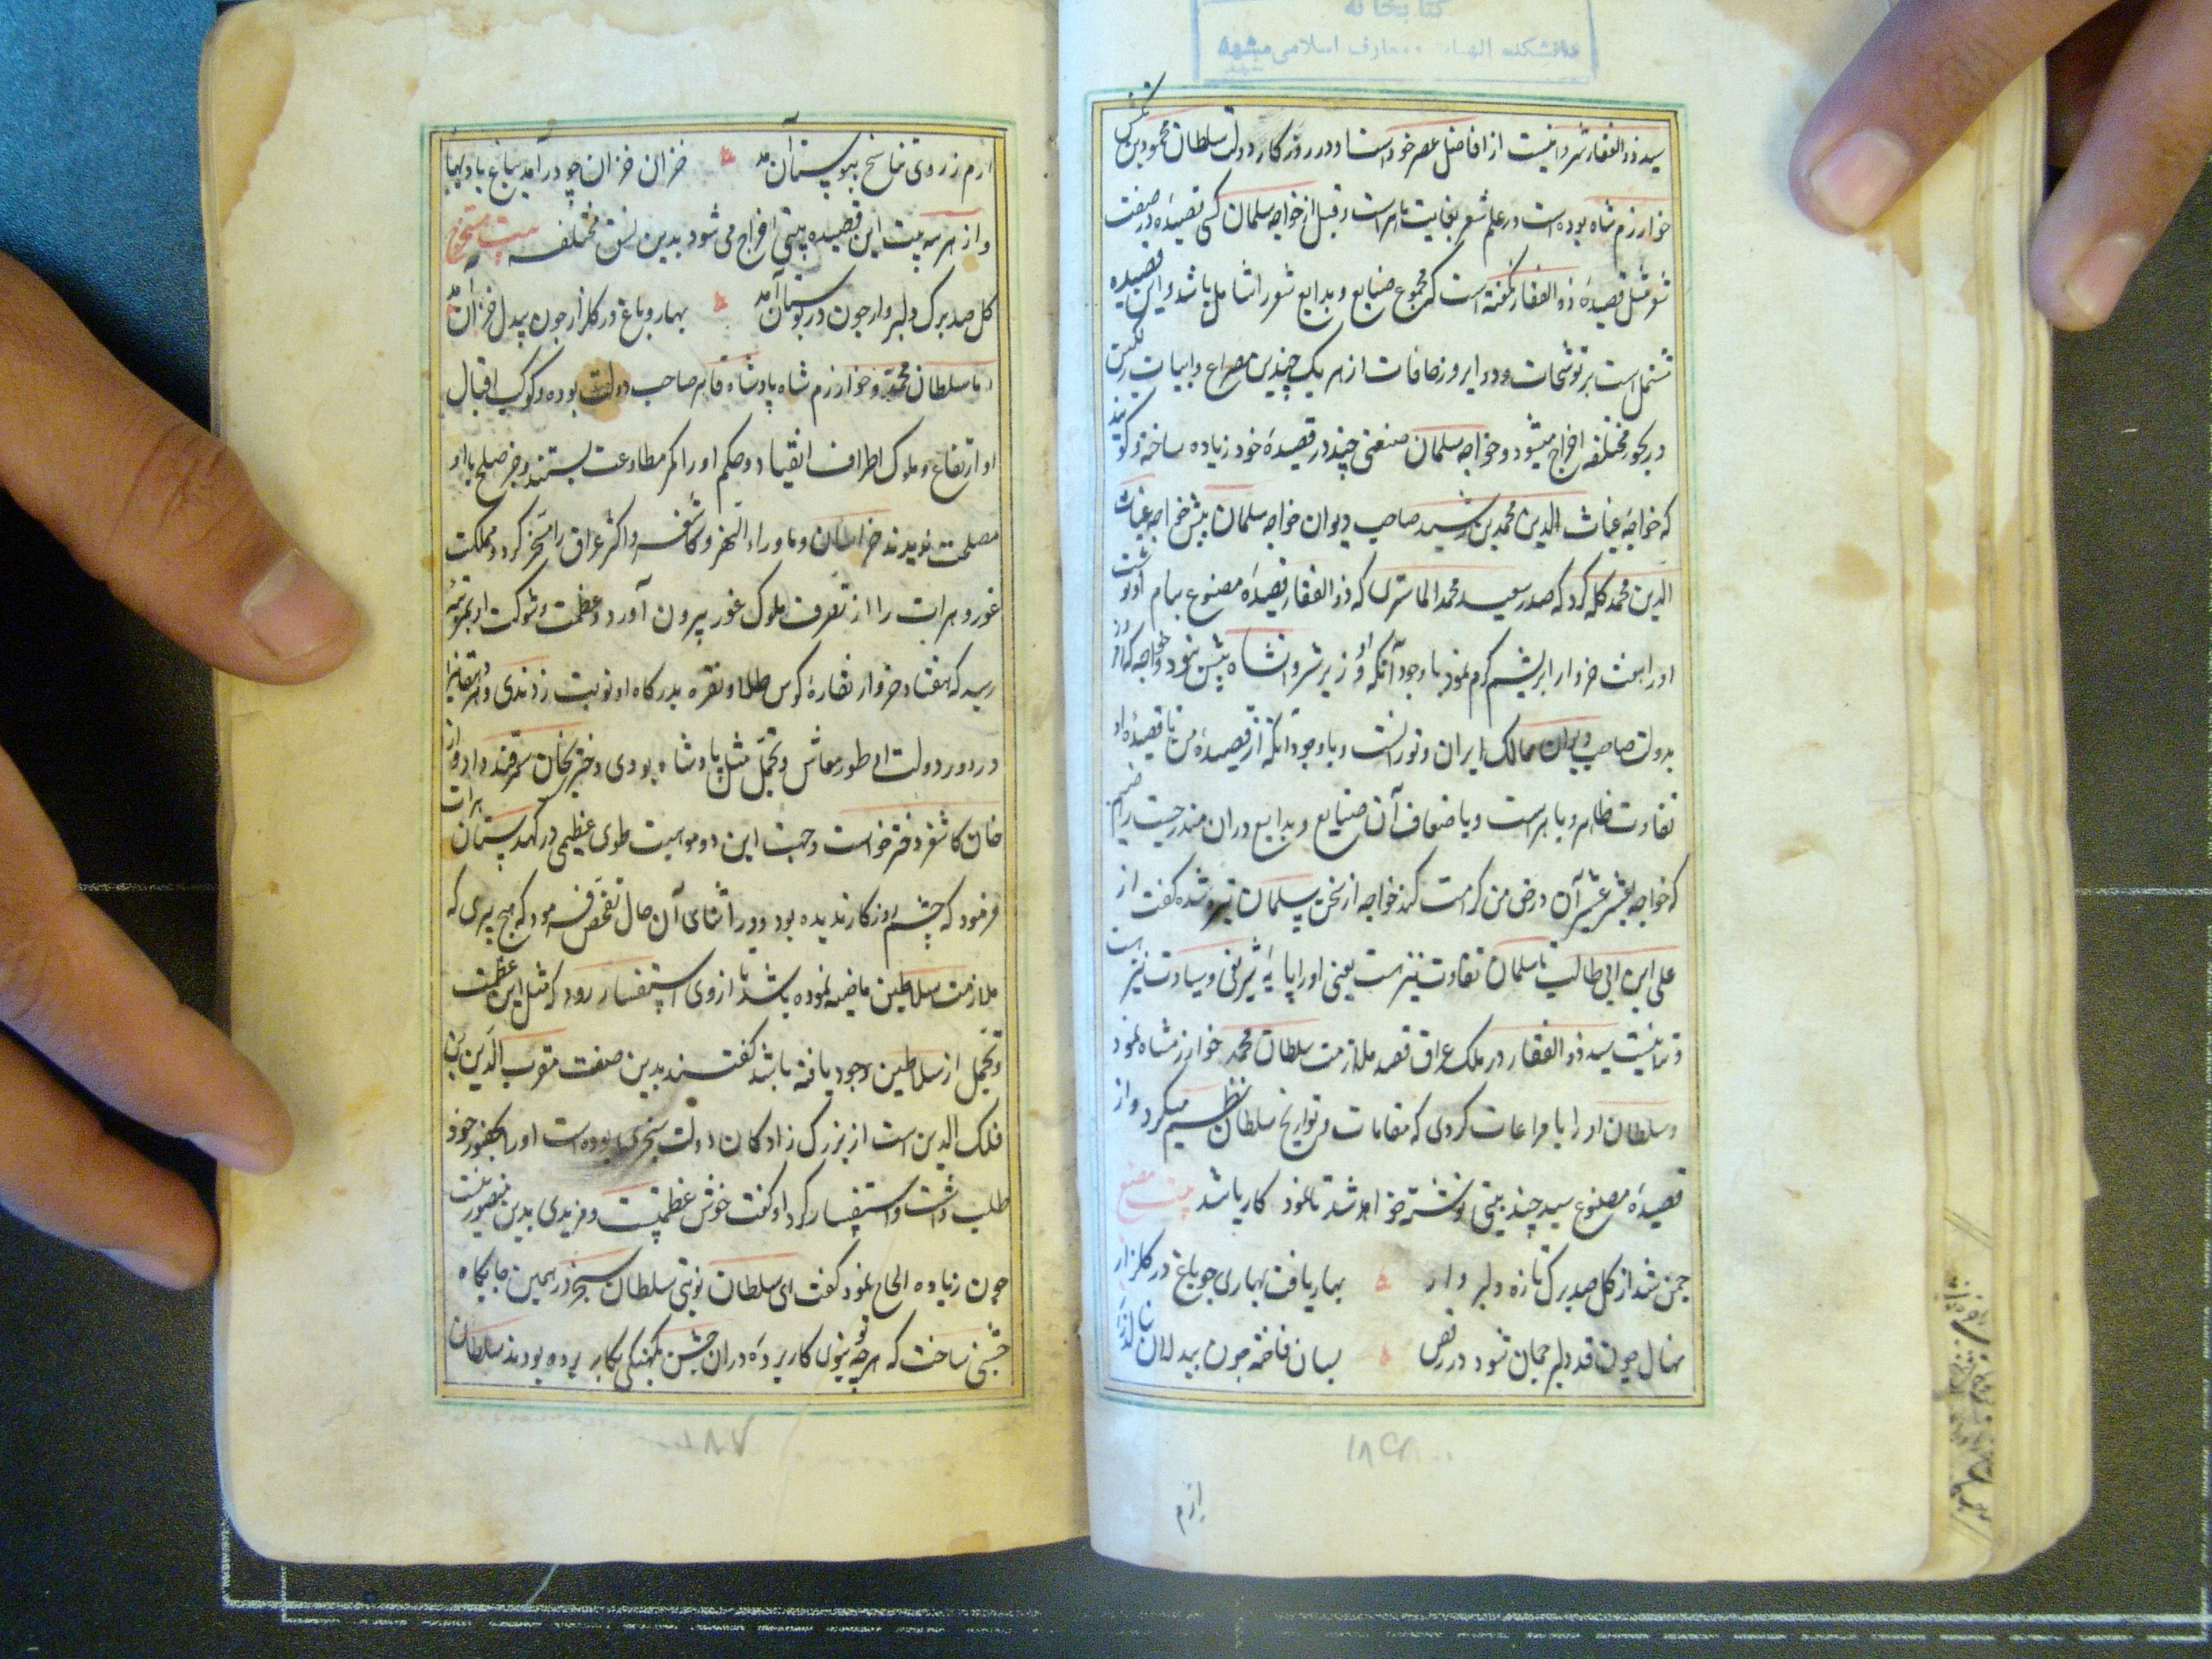 کتابخانه
دانشکده الهیات و معارف اسلامی مشهد
سید ذوالفقار شروانیست از افاضل عصر خود است و در روزکار دولت سلطان محمد بن تکش
خوارزم شاه بوده است در علم شعر بغایت ماهر است و قبل از خواجه سلمان کسی قصیده در صنعت
شعر مثل قصیدهٔ ذوالفقار نکفته است که مجموع صنایع و بدایع شعر را شامل باشد و این قصیده
مشتمل است بر توشحات و دوایر و زحافات از هر یک چندین مصراع و ابیات رنکین
در بحور مختلفه اخراج میشود و خواجه سلمان صنعتی چند در قصیدهٔ خود زیاده ساخته و کویند
که خواجه غیاث الدین محمد بن رشید صاحب دیوان خواجه سلمان پیش خواجه غیاث
الدین محمد کله کرد که صدر سعید محمد الماستری که ذوالفقار قصیدهٔ مصنوع بنام او نوشت
او را هفت خروار ابریشم کرم نمود با وجود آنکه او وزیر شروانشاه بیش نبود و خواجه که امروز
بدولت صاحب دیوان ممالک ایران و تورانست و با وجود آنکه از قصیدهٔ من تا قصیدهٔ او
تفاوت ظاهر و باهر است و باضعاف آن صنایع و بدایع دران مندرجست راضیم
که خواجه بعشر عشیر آن در حق من کرامت کند خواجه از سخن سلمان تیره شده کفت از
علی ابن ابی طالب تا سلمان تفاوت نیز هست یعنی او را پایهٔ شریفی و سیادت نیز هست
سید ذوالفقار در ملک عراق قصد ملازمت سلطان محمد خوارزمشاه نمود
و سلطان او را با مراعات کردی که مقامات و تواریخ سلطان نظم میکرد و از
قصیدهٔ مصنوع سید چند بیتی نوشته خواهد شد تا نمودار باشد بیت مصنوع
چمن شد از کل صد برک تازه دلبر وار بهار یافت بهاری چو باغ در کلزار
نهال چون قد دلبر چمان شود در رقص بسان فاخته چون بیدلان
ازم
ارم ز روی تناسخ ببوستان آمد خزان خزان چو در آمد بباغ باد بهار
و از هر سه بیت این قصیده بیتی اخراج می شود بدین نسق مختلفه بیت مستخرج
کل صد برک دلبر وار چون در بوستان آمد بهار و باغ در کلزار چون بیدل خزان آمد
اما سلطان محمد خوارزم شاه پادشاه قاهر صاحب دولت بوده و کوکب اقبال
او ارتفاع و ملوک اطراف انقیاد و حکم او را کمر مطاوعت بستند و جز صلح با او
مصلحت ندیدند خراسان و ماوراء النهر و کاشغر و اکثر عراق را مسخر کرد و مملکت
غور و هرات را از تصرف ملوک غور بیرون آورد و عظمت و شوکت او بمرتبه
رسید که هفتاد خروار نقارهٔ کوس طلا و نقره بدرکاه او نوبت زدندی
در دور دولت او طور معاش و تجمل مثل پادشاه بودی دختر بخان سمرقند داد و از
خان کاشغر دختر خواست و جهت این دو مواصلت طوی عظیمی در کهدستان هرات
فرمود که چشم روزکار ندیده بود و در اثنای آن حال تفحص فرمود که هیچ پیری که
ملازمت سلاطین ماضیه نموده باشد تا از وی استفسار رود که مثل این عظمت
و تجمل از سلاطین وجود یافته باشد کفتند بدین صفت مقرب الدین بن
فلک الدین است از بزرک زادکان دولت سنجری بوده است او را بحضور خود
طلب داشت و استفسار کرد او کفت خوش عظمتیست و مزیدی بدین متصور نیست
چون زیاده الحاح نمود کفت ای سلطان نوبتی سلطان سنجر در همین جایکاه
جشنی ساخت که هرچه شما بکار برده در آن جشن بکار برده بودند سلطان